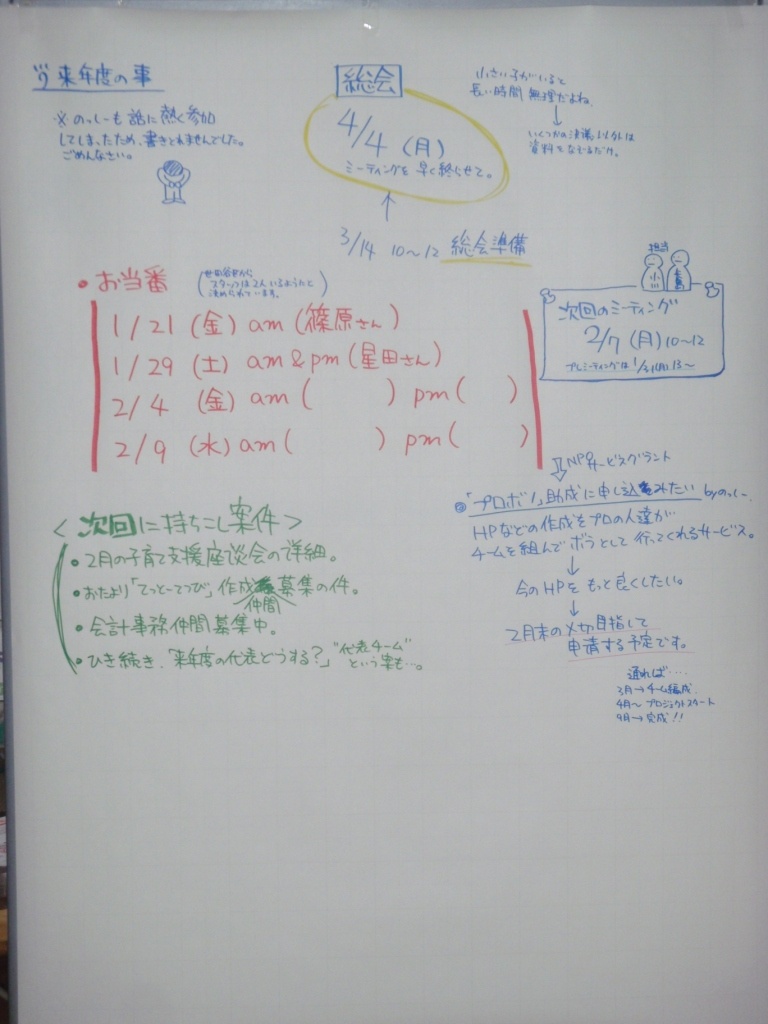 来年度の事
※のっしーも話に熱く参加
してしまったため、書きとれませんでした。
ごめんなさい。
総会
4/4 (月)
ミーティングを早く終らせて。
小さい子がいると
長い時間 無理だよね。
↓
いくつかの決議以外は
資料を
↑
3/14 10~12 総会準備
・お当番
(世田谷区から
スタッフは2人いるようにと
決められています。)
1/21 (金) am (篠原さん)
1/29 (土) am & pm (星田さん)
2/4 (金) am ( ) pm ( )
2/9 (水) am ( ) pm ( )
担当
小川
次回のミーティング
2/7 (月) 10~12
プレミーティングは 1/31(月) 13~
<次回に持ちこし案件>
・2月の子育て支援座談会の詳細。
・おたより「てっとーてつび」作成仲間募集の件。
・会計事務仲間募集中。
・ひき続き、「来年度の代表どうする?」"代表チーム"
という案も…。
⇓ NPOサービスグラント
・「プロボノ」助成に申し込みたい byのっしー
HPなどの作成をプロの人達が
チームを組んでボラとして行ってくれるサービス。
↓
今のHPをもっと良くしたい。
↓
2月末の〆切目指して
申請する予定です。
通れば・・・・
3月→チーム編成
4月~ プロジェクトスタート
9月→完成!!